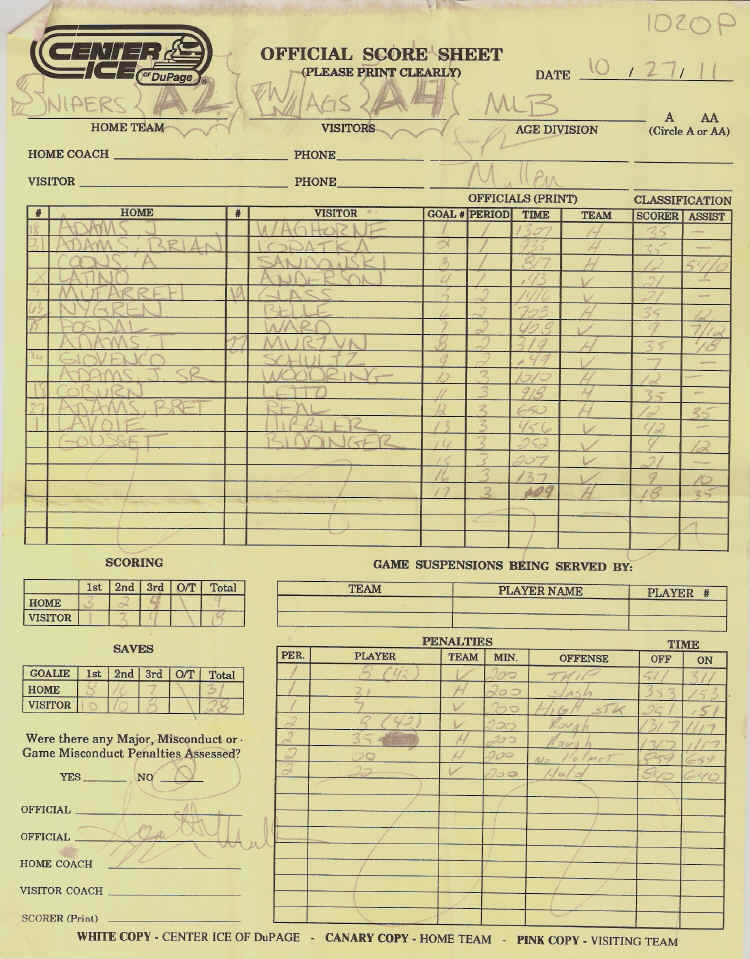 1020P
CENTER ICE of DuPage ®
OFFICIAL SCORE SHEET
(PLEASE PRINT CLEARLY)
DATE 10 / 27 / 11
SNIPERS A2 WAGS A4 MLB
HOME TEAM VISITORS AGE DIVISION A AA
(Circle A or AA)
HOME COACH PHONE
VISITOR PHONE Mullen
OFFICIALS (PRINT) CLASSIFICATION
# HOME # VISITOR GOAL # PERIOD TIME TEAM SCORER ASSIST
18 ADAMS, J WAGHORNE 1 1 1307 H 35 —
21 ADAMS, BRIAN LOPATKA 2 1 H 35 —
COONS, A SANDOWSKI 3 1 817 H 12
X LATINO ANDERSON 4 1 :43 V 21 —
MUFARREH 19 GLASS 5 2 1416 V 21 —
NYGREN BELLE 6 2 H 35 12
FOSDAL WARD 7 2 408 V 9 7/12
ADAMS T 27 MURZYN 8 2 319 H 35 18
GIOVENCO SCHULTZ 9 2 :49 V 7 —
ADAMS, J. SR WOODRING 10 3 1010 H 12 —
13 COBURN LETTO 11 3 918 H 35 —
27 ADAMS, BRET REAL 12 3 650 H 12 35
1 LAVOIE HIBBLER 13 3 456 V 42 —
GOUSSET BIDDINGER 14 3 252 V 4 12
15 3 207 V 21 —
16 3 137 V 9 10
17 3 109 H 18 35
SCORING GAME SUSPENSIONS BEING SERVED BY:
1st 2nd 3rd O/T Total TEAM PLAYER NAME PLAYER #
HOME 3 2 4 \ 9
VISITOR 1 3 4 \ 8
SAVES PENALTIES TIME
PER. PLAYER TEAM MIN. OFFENSE OFF ON
GOALIE 1st 2nd 3rd O/T Total
HOME 8 16 7 \ 31
VISITOR 10 10 8 \ 28
1 8 (42) V 200 TRIP 511 311
1 21 H 200 Slash 353 153
1 7 V 200 HIGH STK 351 151
2 9 (42) V 200 Rough 1317 1117
2 35 H 200 Rough 1317 1117
2 H 200 No Helmet 859 659
2 V 200 Hold 840 640
Were there any Major, Misconduct or
Game Misconduct Penalties Assessed?
YES NO
OFFICIAL
OFFICIAL
HOME COACH
VISITOR COACH
SCORER (Print)
WHITE COPY - CENTER ICE OF DuPAGE - CANARY COPY - HOME TEAM - PINK COPY - VISITING TEAM